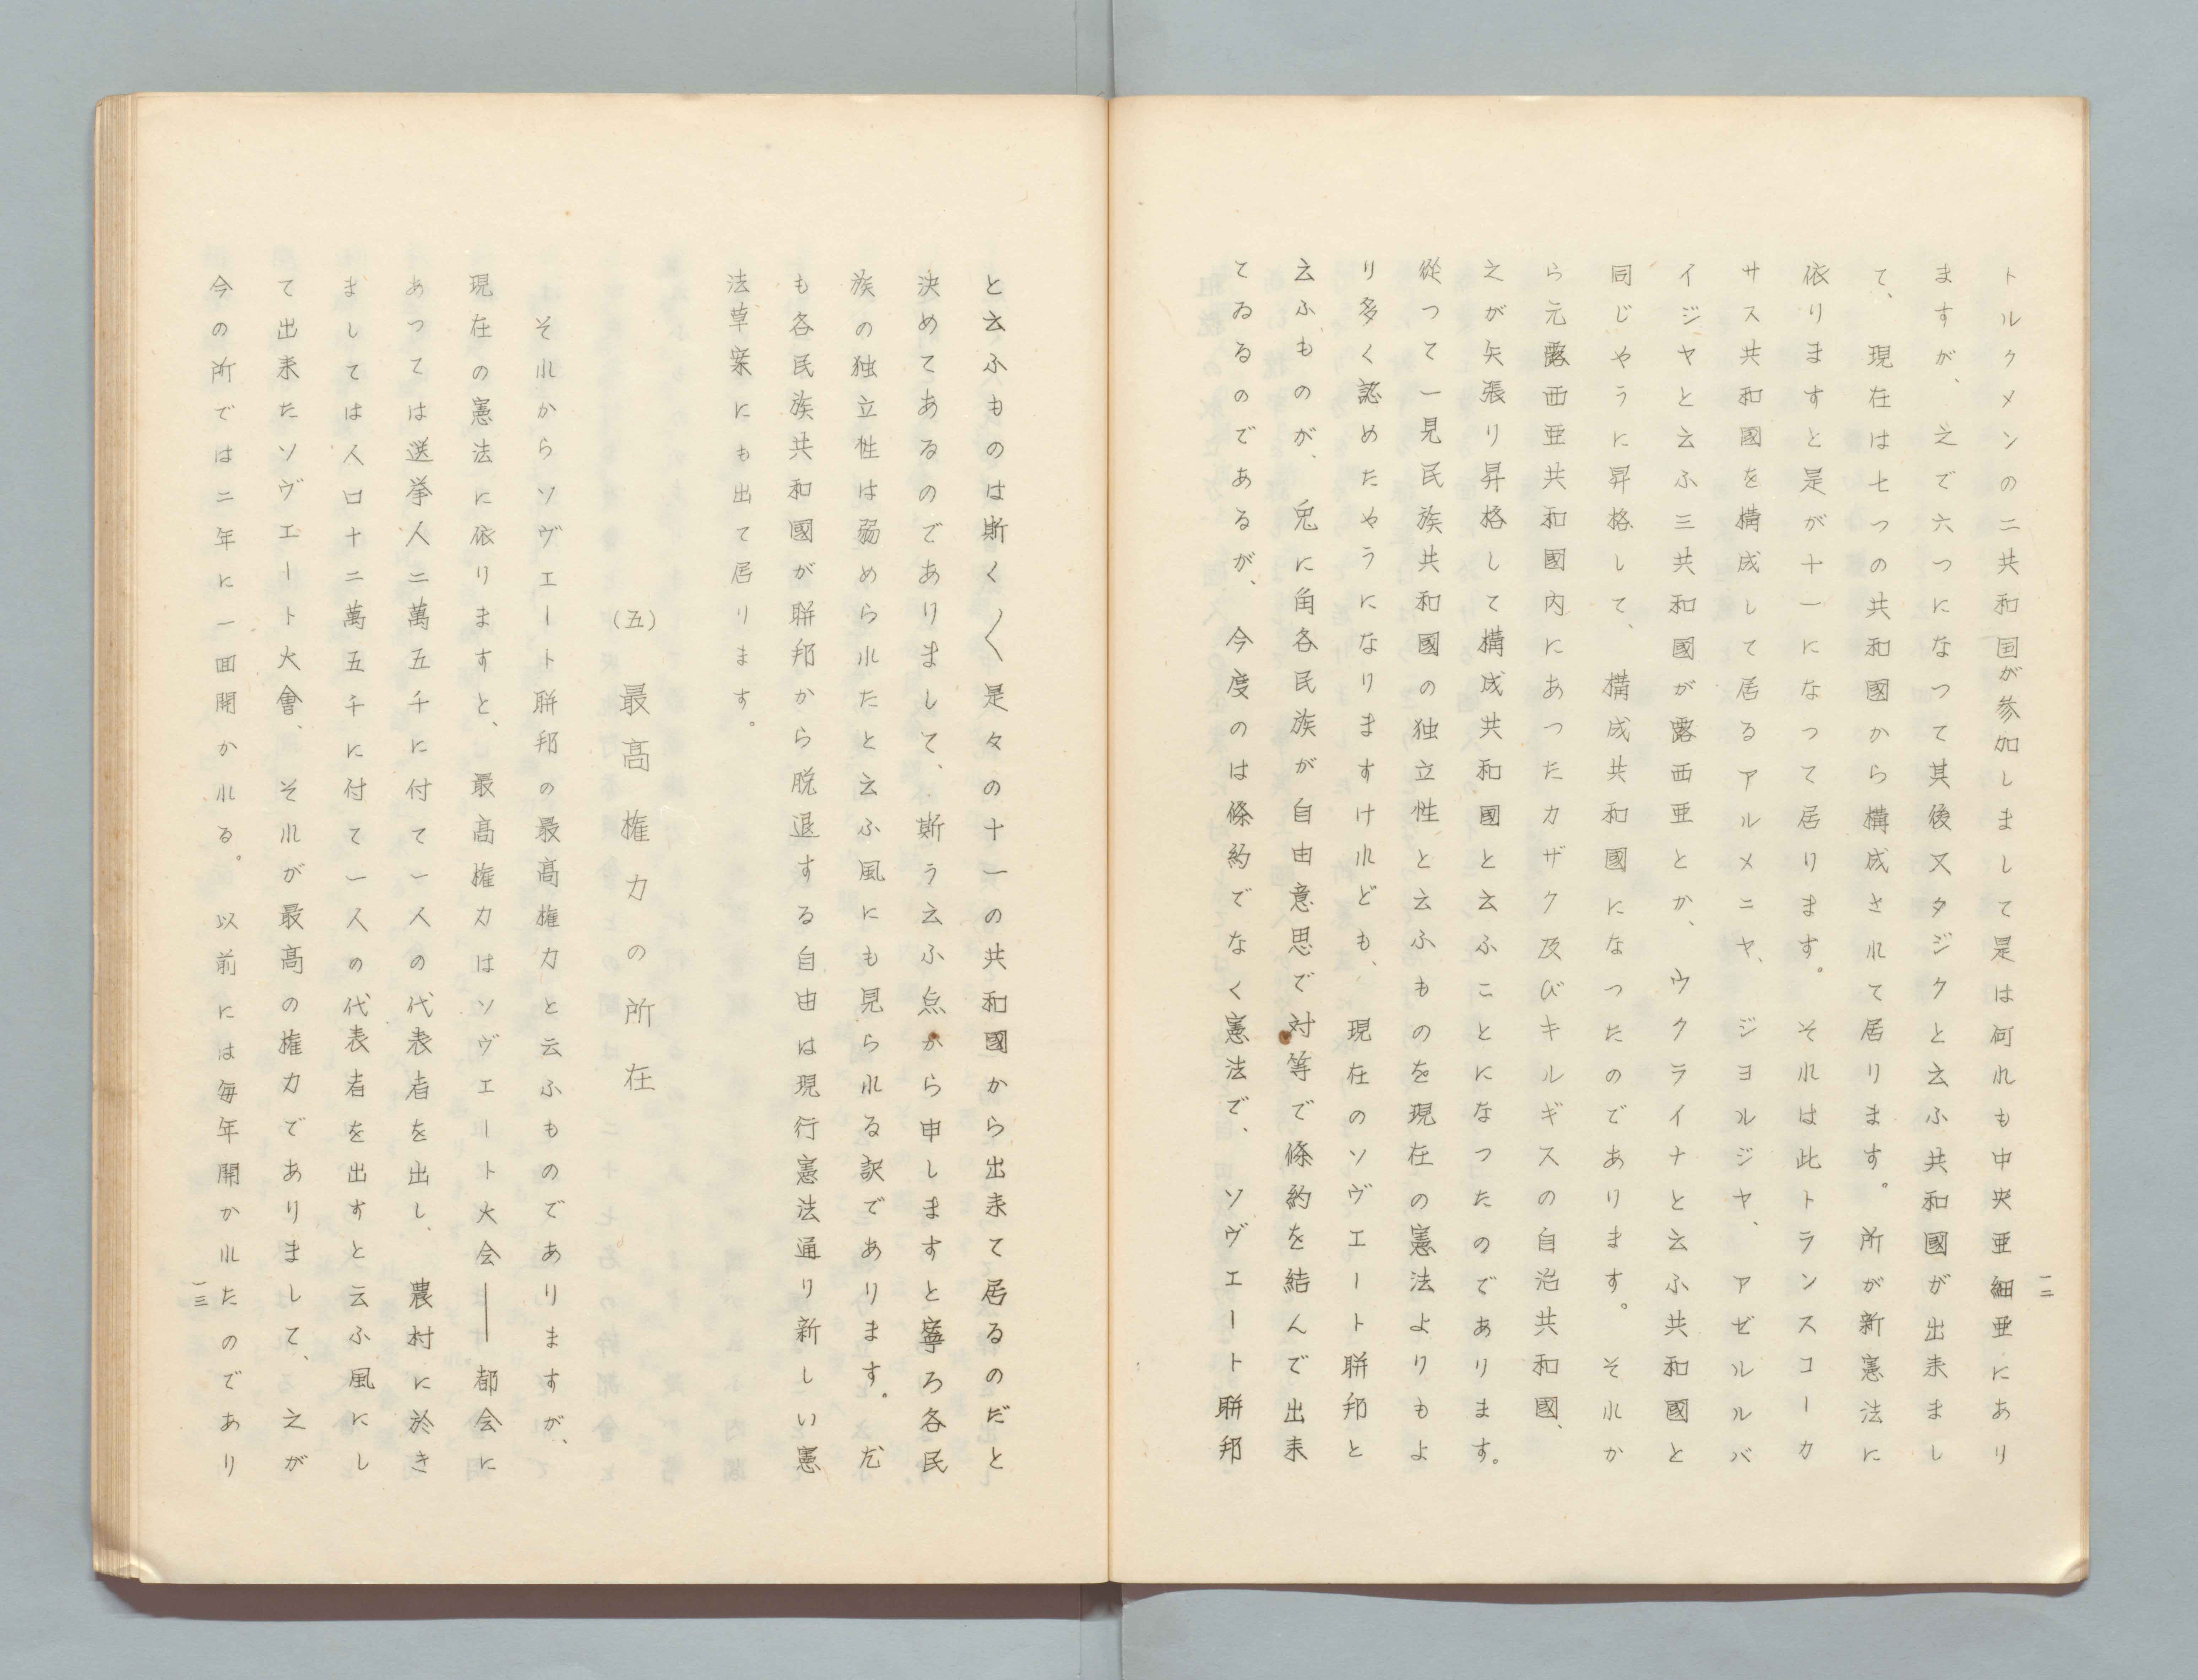 トルクメンの二共和国が参加しまして是は何れも中央亜細亜にあり
ますが、之で六つになつて其後又タジクと云ふ共和國が出来まし
て、現在は七つの共和國から構成されて居ります。所が新憲法に
依りますと是が十一になつて居ります。それは此トランスコーカ
サス共和國を構成して居るアルメニヤ、ジヨルジヤ、アゼルルバ
イジヤと云ふ三共和國が露西亜とか、ウクライナと云ふ共和國と
同じやうに昇格して、構成共和國になつたのであります。それか
ら元露西亜共和國内にあつたカザク及びキルギスの自治共和國、
之が矢張り昇格して構成共和國と云ふことになつたのであります。
從つて一見民族共和國の独立性と云ふものを現在の憲法よりもよ
り多く認めたやうになりますけれども、現在のソヴエート聯邦と
云ふものが、兎に角各民族が自由意思で対等で條約を結んで出来
てゐるのであるが、今度のは條約でなく憲法で、ソヴエート聯邦
一二
と云ふものは斯く〱是々の十一の共和國から出来て居るのだと
決めてあるのでありまして、斯う云ふ点から申しますと寧ろ各民
族の独立性は弱められたと云ふ風にも見られる訳であります。尤
も各民族共和國が聯邦から脱退する自由は現行憲法通り新しい憲
法草案にも出て居ります。
(五) 最高権力の所在
それからソヴエート聯邦の最高権力と云ふものでありますが、
現在の憲法に依りますと、最高権力はソヴエート大会――都会に
あつては選挙人二萬五千に付て一人の代表者を出し、農村に於き
ましては人口十二萬五千に付て一人の代表者を出すと云ふ風にし
て出来たソヴエート大會、それが最高の権力でありまして、之が
今の所では二年に一回開かれる。以前には毎年開かれたのであり
一三